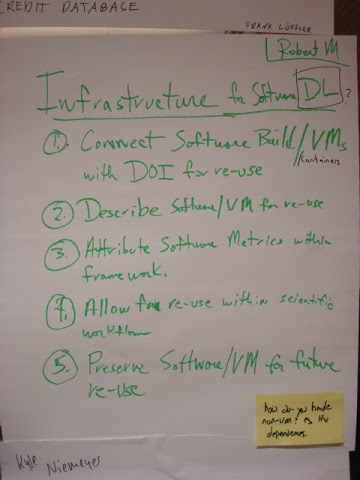 CREDIT DATABASE
FRANK LÖFFLER
Robert M
Infrastructure for Software DL ?
1. Connect Software Build/VMs
containers
with DOI for re-use
2. Describe Software/VM for re-use
3. Attribute Software Metrics within
framework.
4. Allow for re-use within scientific
workflow
5. Preserve Software/VM for future
re-use
how do you handle
non-VM?
dependencies.
Kyle Niemeyer